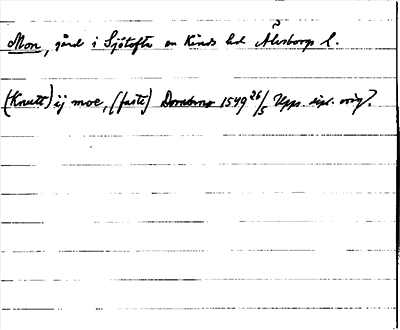 Mon, gård i Sjötofta sn Kinds hd Älvsborgs l.
(Knutt) ij moe, (faste) Domarna 1549 26/5 Upps. dipl. orig?